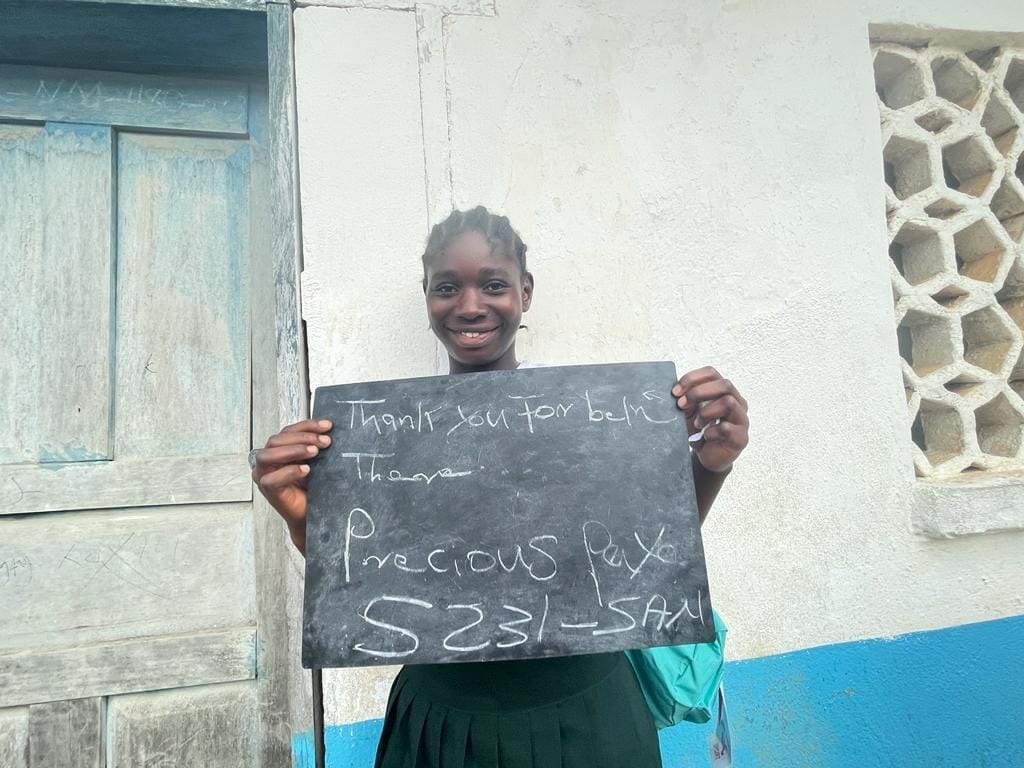 Thank you For being
There.
Precious Paye
S231-SAM